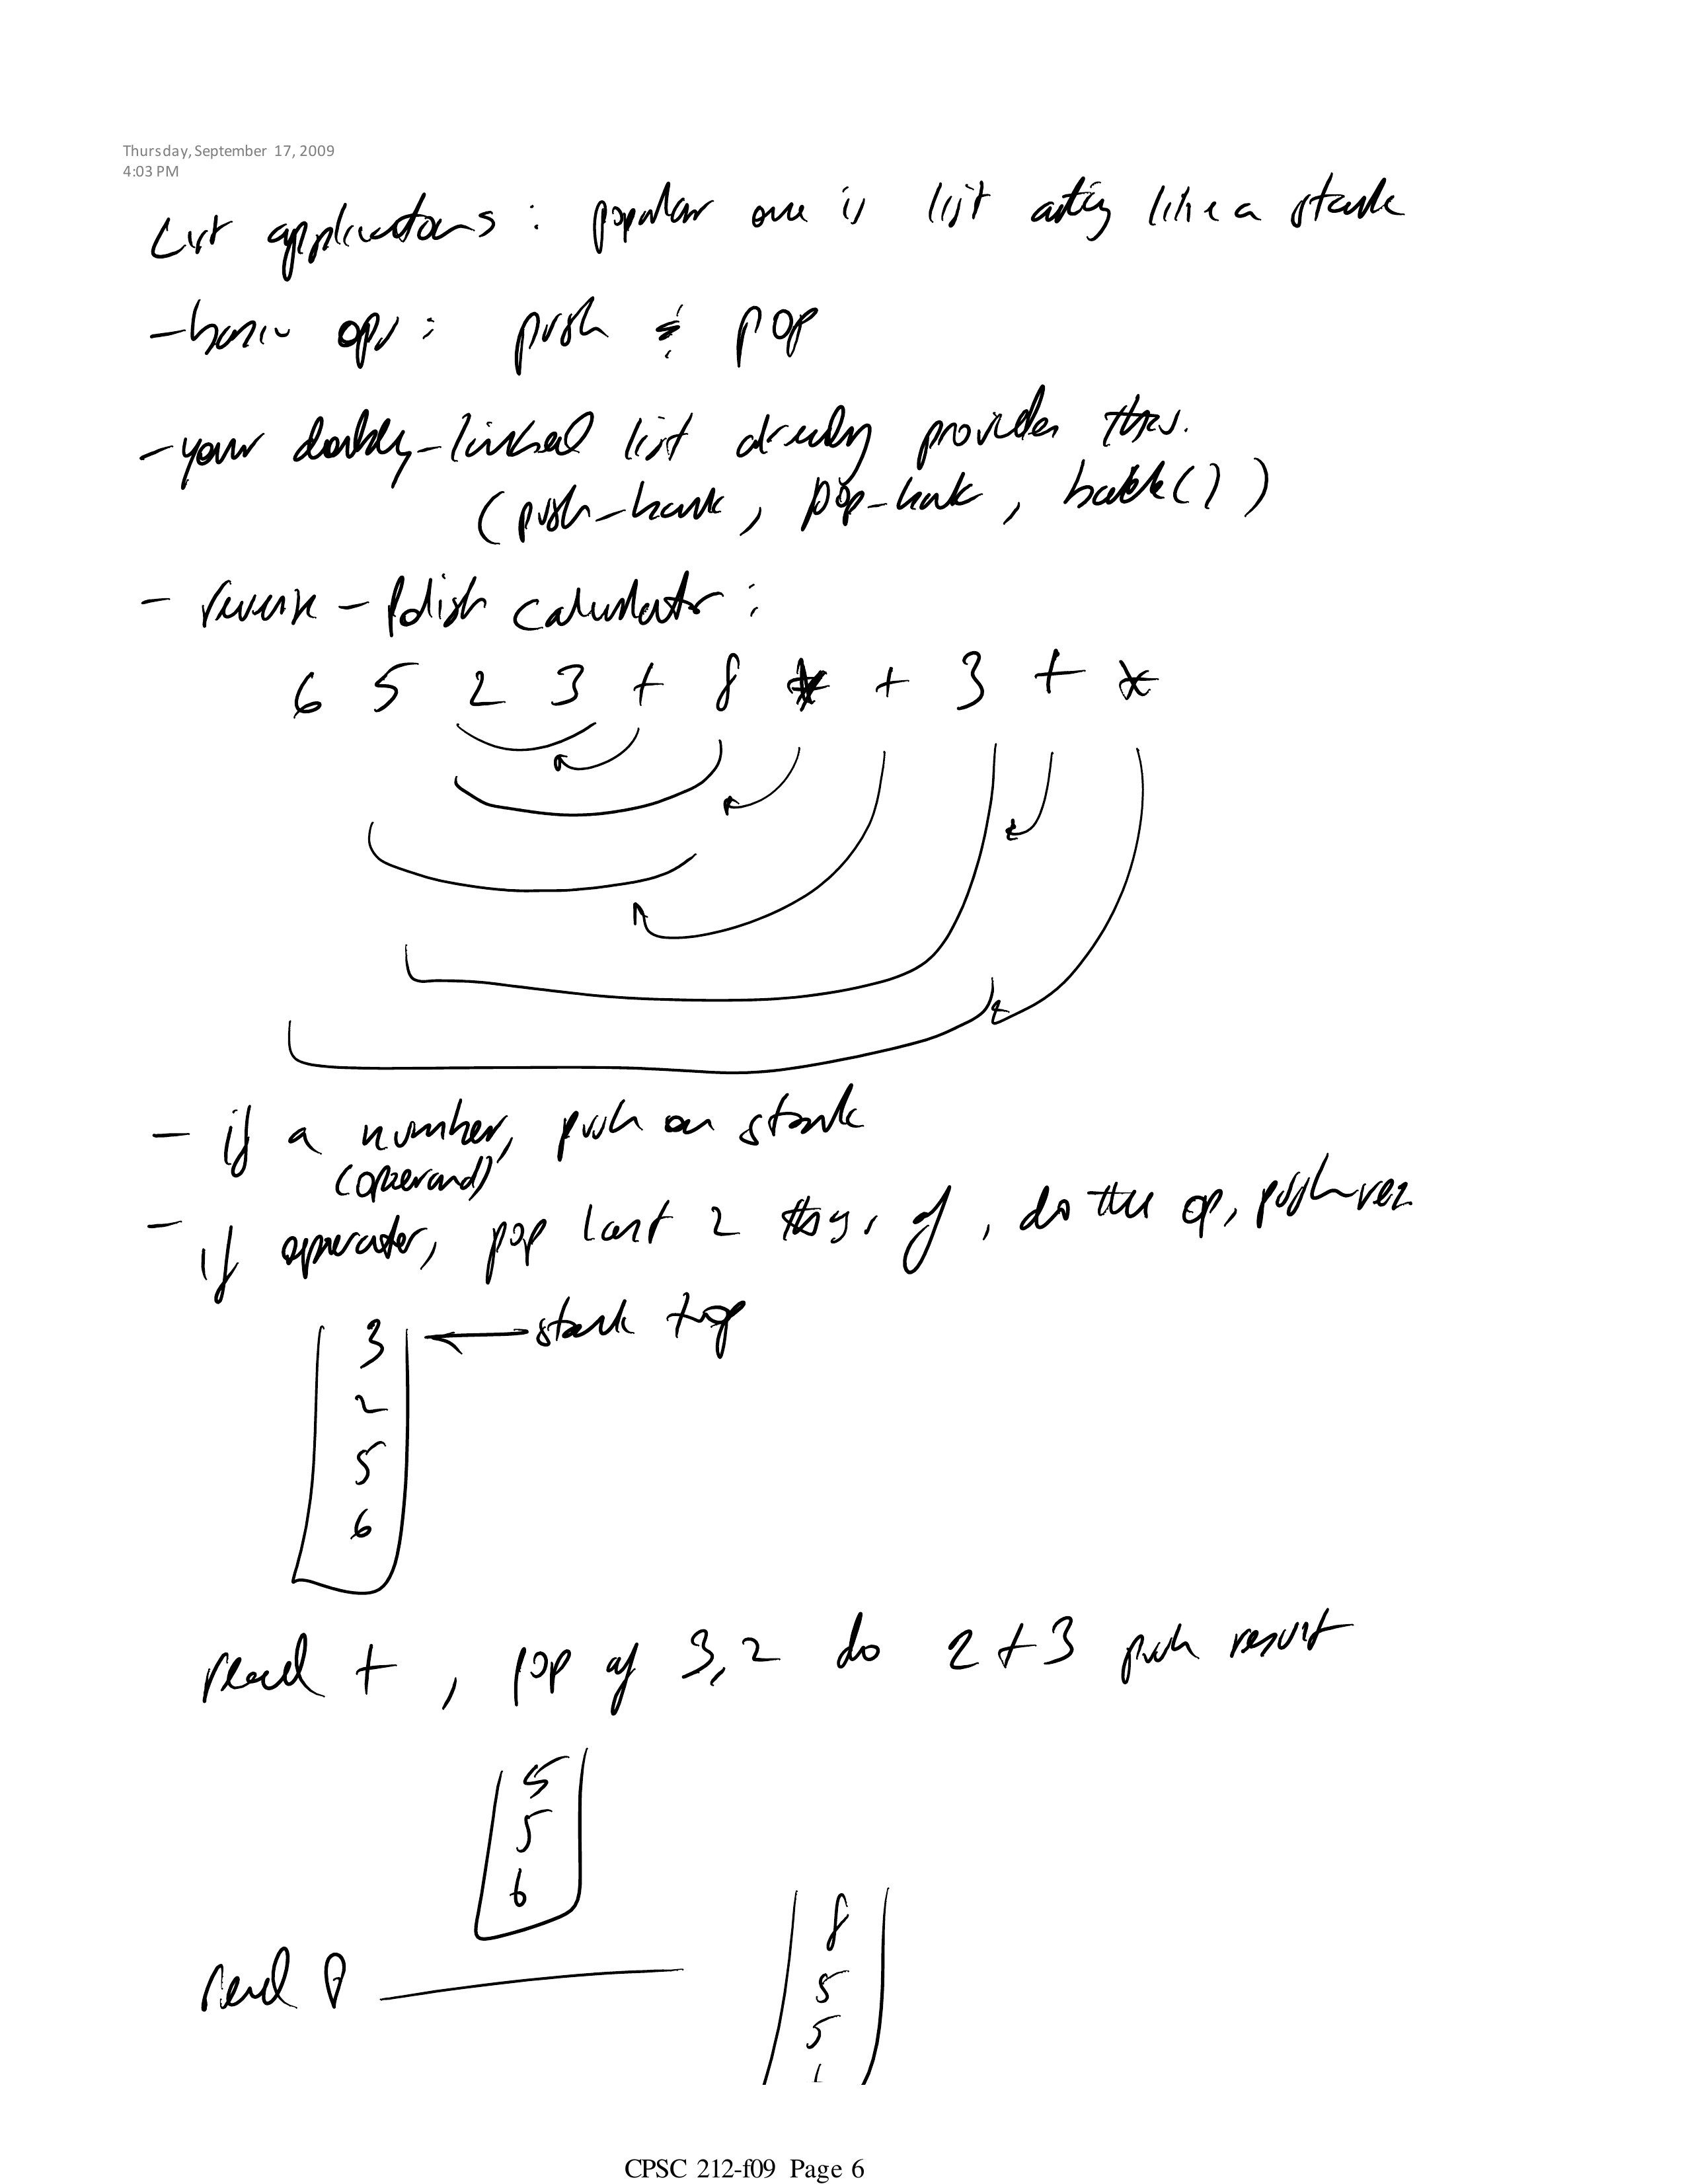 Thursday, September 17, 2009
4:03 PM
List applications : popular one is list acting like a stack
- basic ops : push & pop
- your doubly-linked list already provides this.
(push-back, pop-back, back())
- reverse-Polish calculator :
6 5 2 3 + 8 * + 3 + *
- if a number, push on stack
(operand)
- if operator, pop last 2 things off, do the op, push res
3 ← stack top
2
5
6
read +, pop off 3, 2 do 2+3 push result
5
5
6
8
read 8
5
5